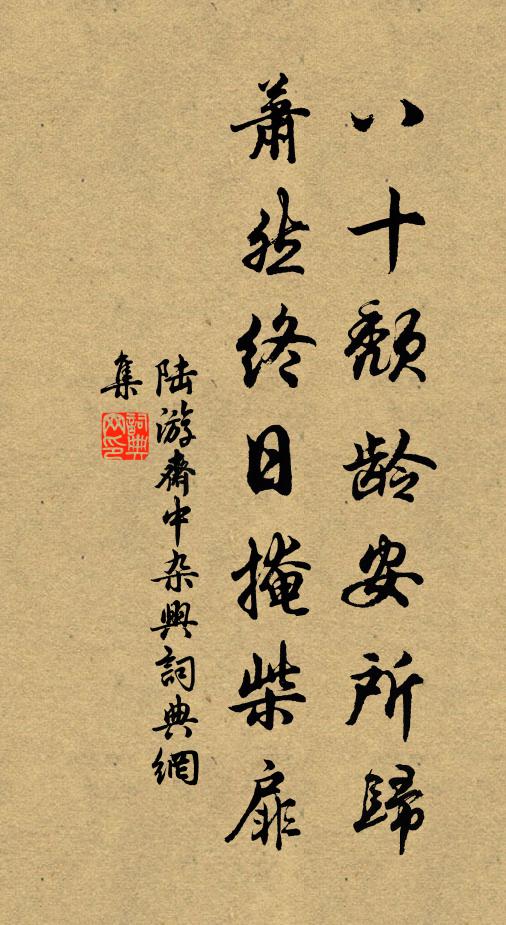 八十颓龄安所歸
蕭然终日掩柴扉
陆游齋中杂興詞典網
集
詞典
网印